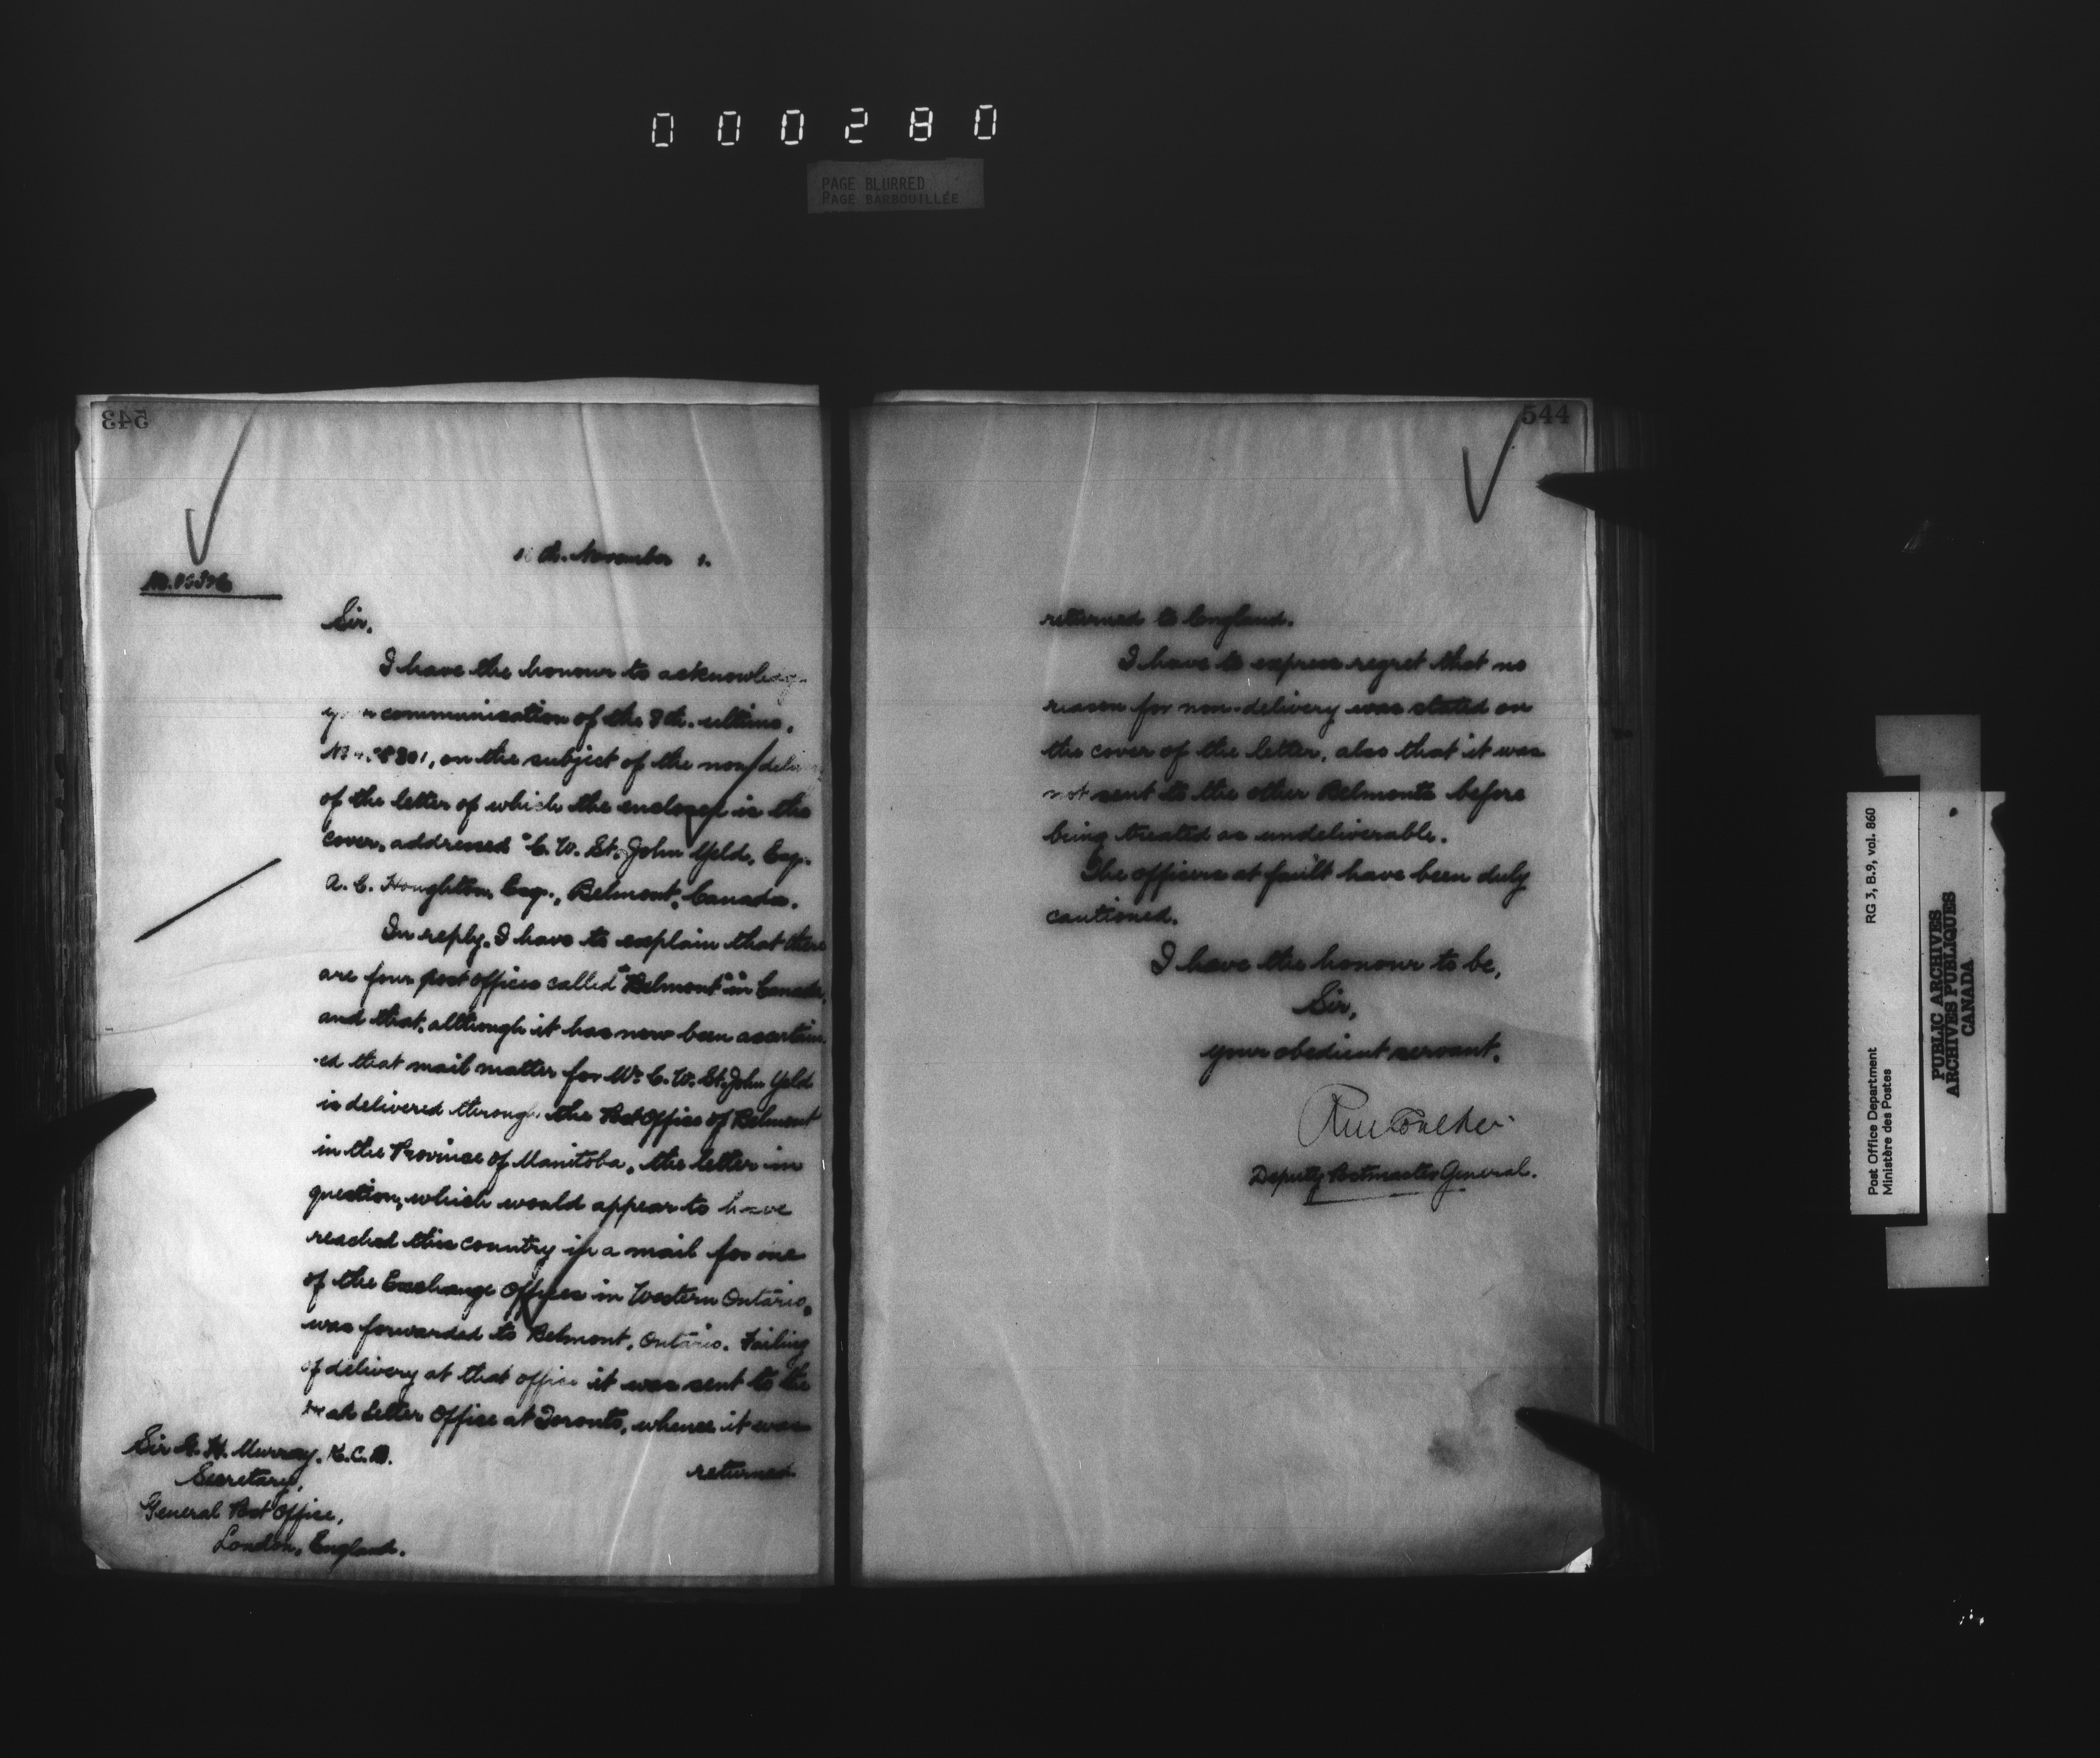 000280
PAGE BLURRED
PAGE BARBOUILLÉE
543
th. November
Sir,
I have the honour to acknowledge
your communication of the 8th. ultimo,
on the subject of the non-
of the letter of which the enclosed is the
cover, addressed "C. W. St. John Yeld, Esq.
A. C. Houghton, Esq., Belmont, Canada.
In reply, I have to explain that there
are four post offices called "Belmont" in Canada,
and that, although it has now been ascertain
-ed that mail matter for Mr. C. W. St. John Yeld
is delivered through the Post Office of Belmont
in the Province of Manitoba, the letter in
question, which would appear to have
reached this country in a mail for one
of the Exchange Offices in Western Ontario,
was forwarded to Belmont, Ontario. Failing
of delivery at that office it was sent to the
Dead Letter Office at Toronto, whence it was
returned
Sir G. H. Murray, K.C.B.
Secretary,
General Post Office,
London, England.
544
returned to England.
I have to express regret that no
reason for non-delivery was stated on
the cover of the letter, also that it was
not sent to the other Belmonts before
being treated as undeliverable.
The officers at fault have been duly
cautioned.
I have the honour to be,
Sir,
your obedient servant,
Deputy Postmaster General.
Post Office Department
Ministère des Postes
RG 3, B.9, vol. 860
PUBLIC ARCHIVES
ARCHIVES PUBLIQUES
CANADA